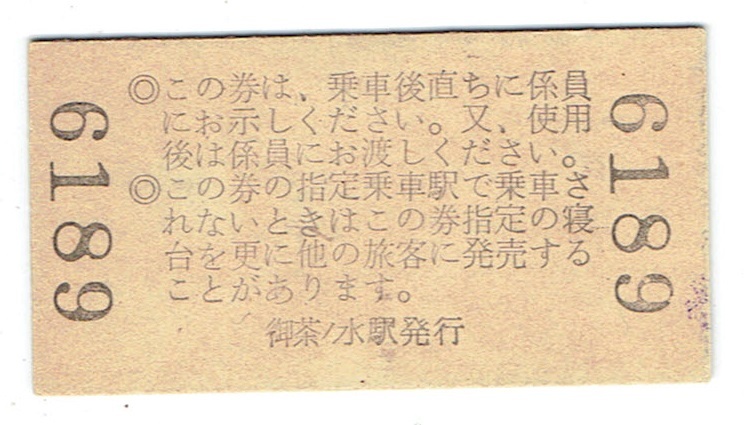 ◎この券は、乗車後直ちに係員
にお示しください。又、使用
後は係員にお渡しください。
◎この券の指定乗車駅で乗車さ
れないときはこの券指定の寝
台を更に他の旅客に発売する
ことがあります。
御茶ノ水駅発行
6189
6189